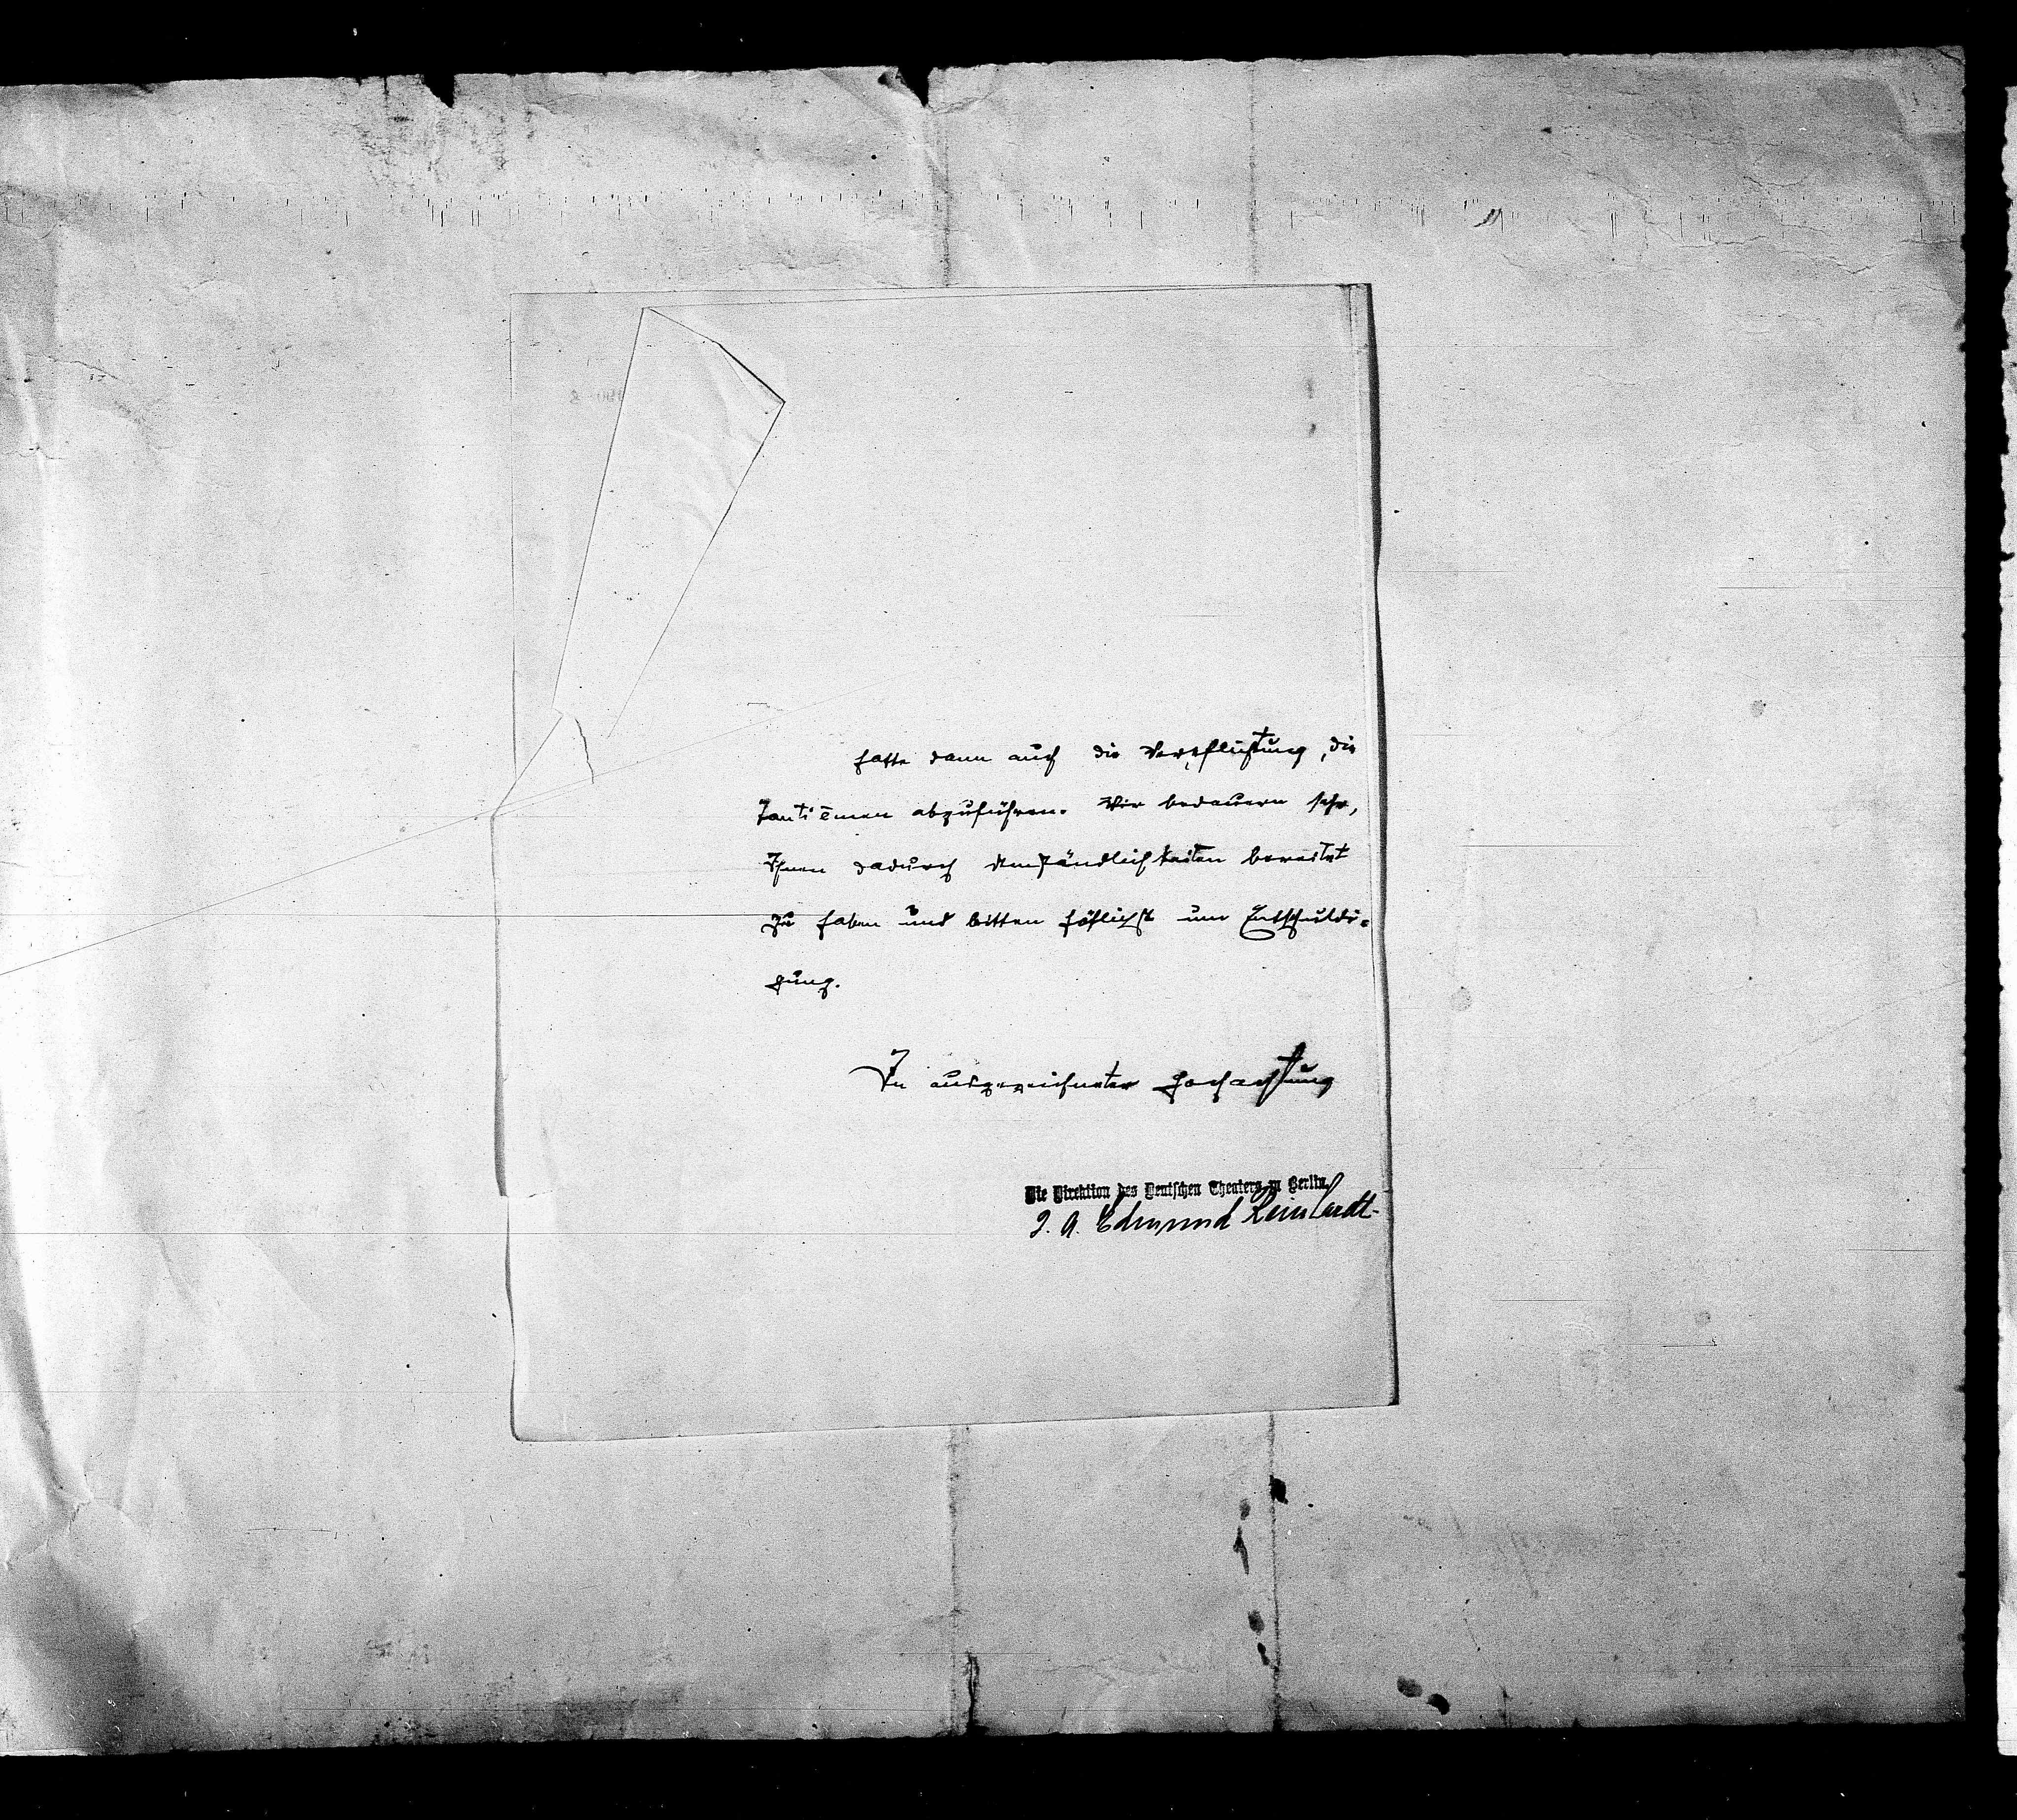 hatte dann auch die Verpflichtung, die
Tantièmen abzuführen. Wir bedauern sehr,
Ihnen dadurch Umständlichkeiten bereitet
zu haben und bitten höflichst um Entschuldi=
gung.
In ausgezeichneter Hochachtung
Die Direktion des Deutschen Theaters zu Berlin.
I. A. Edmund Reinhardt.